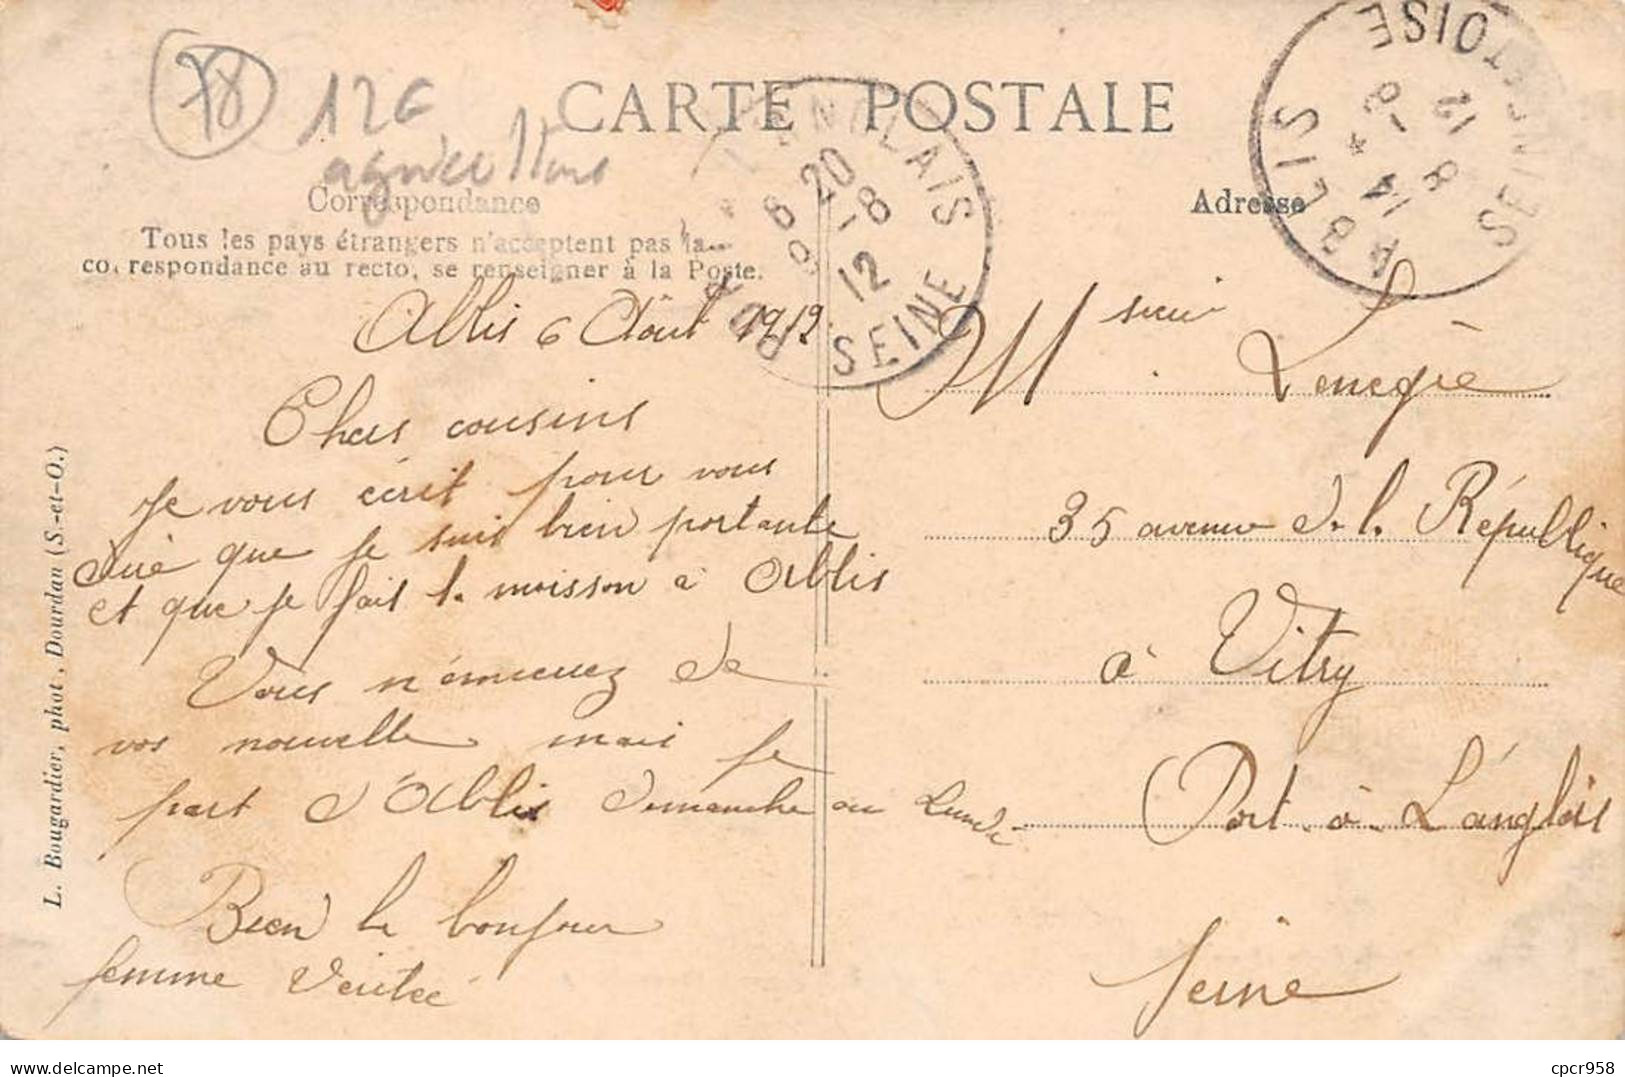 78
12€
agriculture
CARTE POSTALE
Correspondance
Adresse
Tous les pays étrangers n'acceptent pas la
correspondance au recto, se renseigner à la Poste.
ABLIS
SEINE-ET-OISE
14 * 8-8 12
SEINE
8 20 8-8 12
Ablis 6 Août 1912
Chers cousins
Je vous écrit pour vous
dire que je suis bien portante
et que je fait la moisson à Ablis
Vous n'émeuez de
vos nouvelle mais je
part d'Ablis dimanche ou Lundi
Bien le bonjour
femme
Msieur Lenegre
35 avenue d. l. République
à Vitry
Port à L'anglais
Seine
L. Bougardier, phot, Dourdan (S.-et-O.)
cpcr958